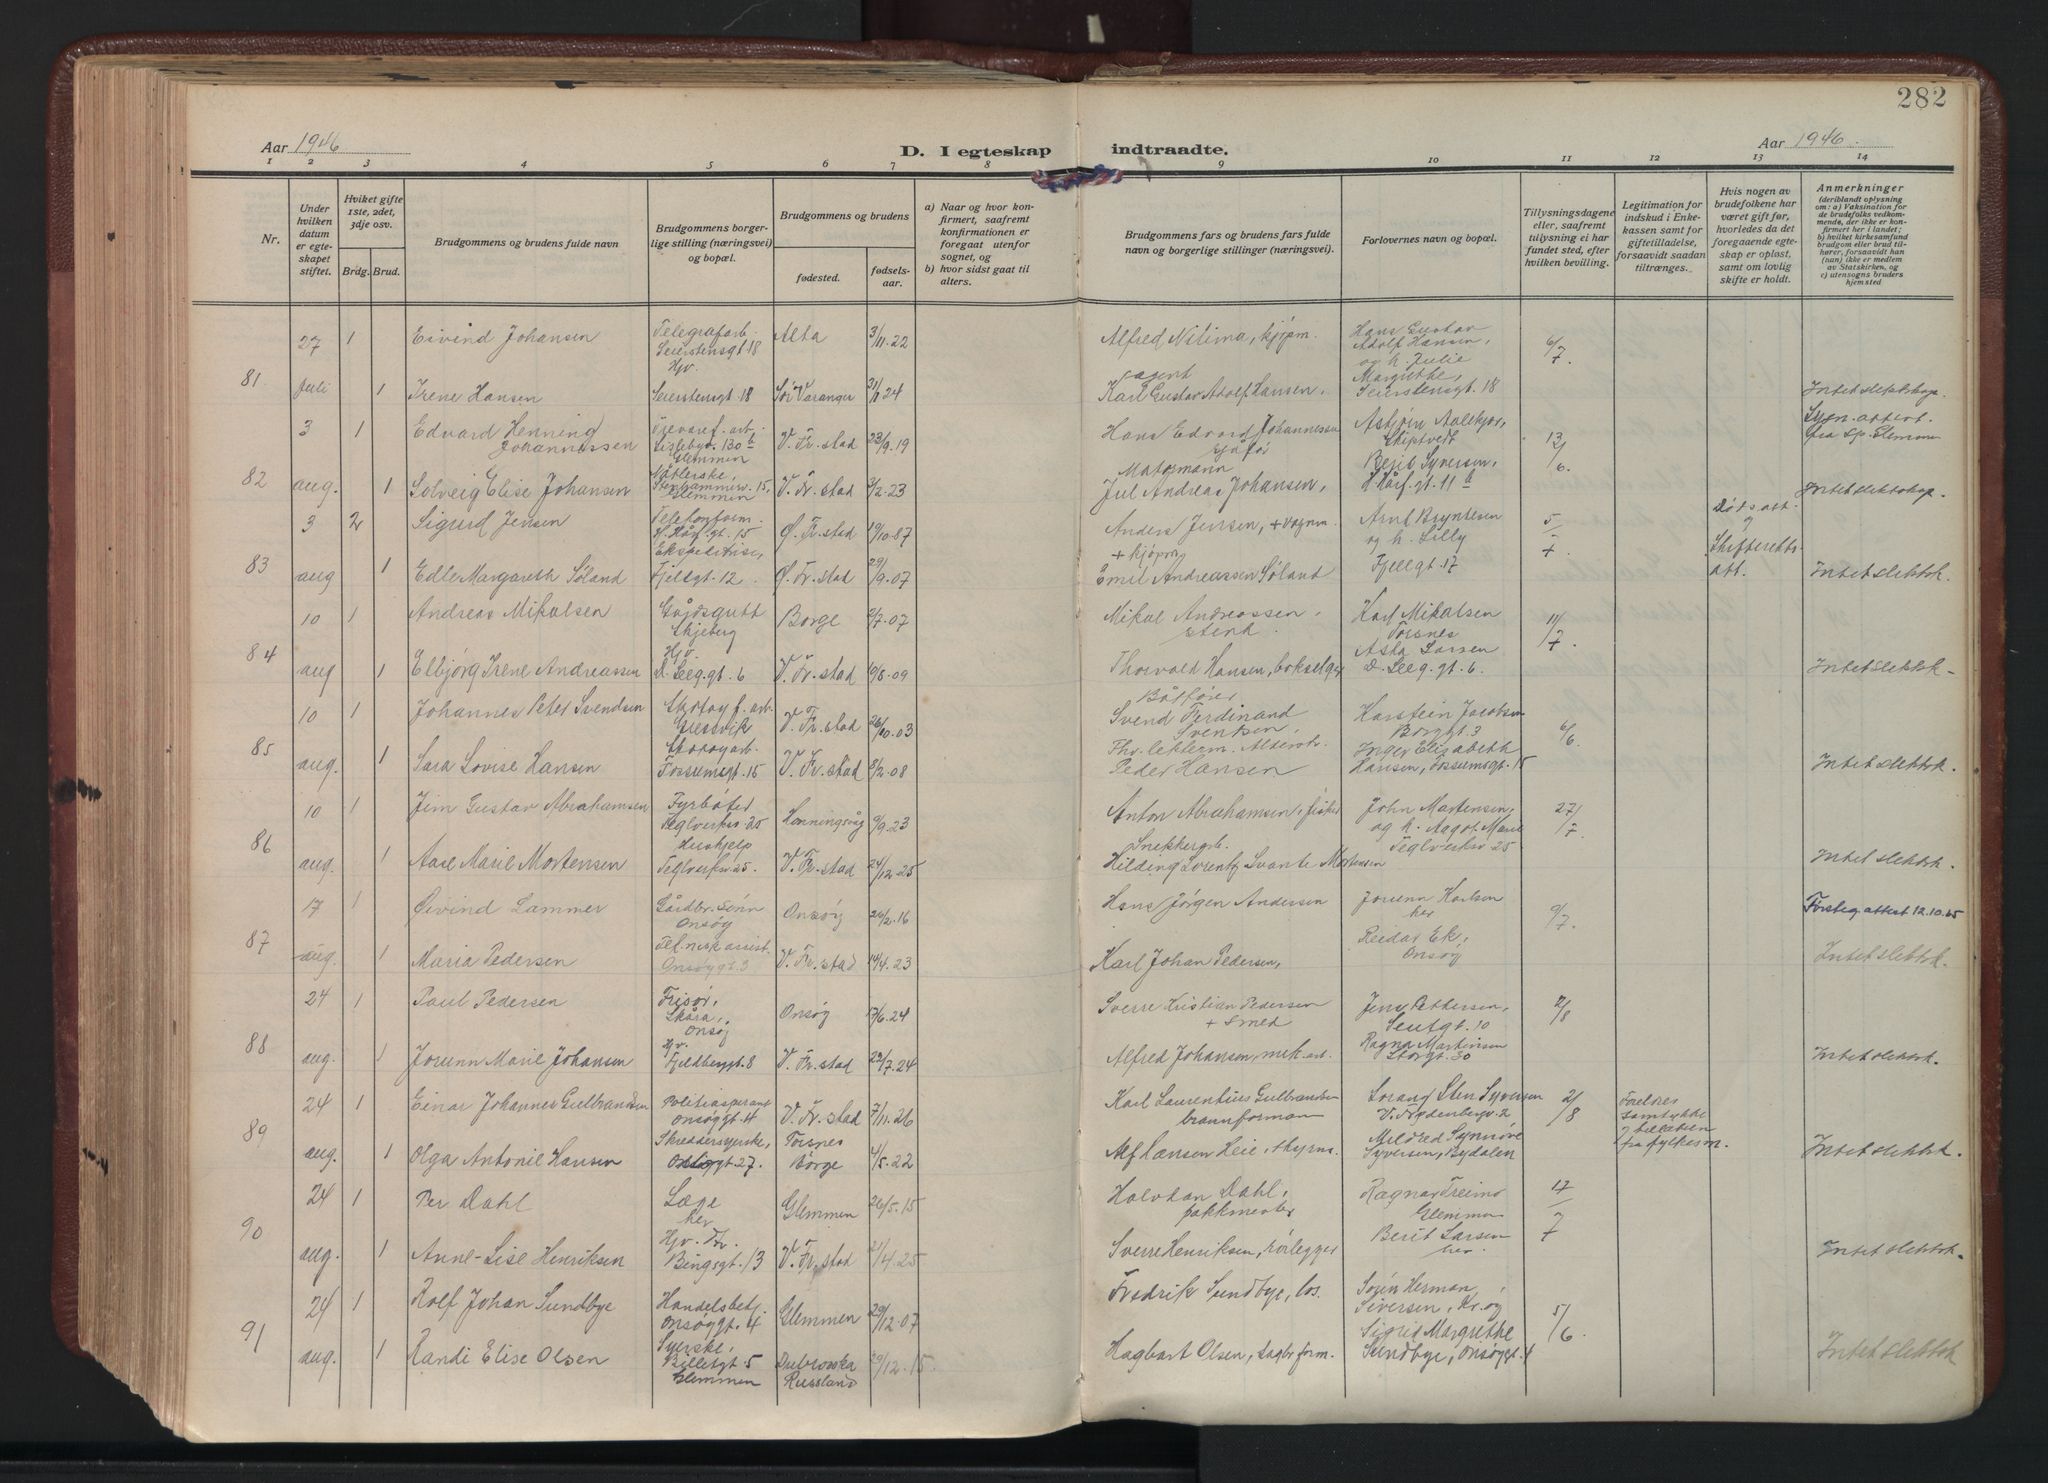 282
Aar 1946
D. I egteskap indtraadte.
Aar 1946.
1 2 3 4 5 6 7 8 9 10 11 12 13 14
Nr.
Under hvilken datum er egteskapet stiftet.
Hviket gifte 1ste, 2det, 3dje osv.
Brdg. Brud.
Brudgommens og brudens fulde navn
Brudgommens borgerlige stilling (næringsvei) og bopæl.
Brudgommens og brudens
fødested.
fødselsaar.
a) Naar og hvor konfirmert, saafremt konfirmationen er foregaat utenfor sognet, og
b) hvor sidst gaat til alters.
Brudgommens fars og brudens fars fulde navn og borgerlige stillinger (næringsvei).
Forlovernes navn og bopæl.
Tillysningsdagene eller, saafremt tillysning ei har fundet sted, efter hvilken bevilling.
Legitimation for indskud i Enkekassen samt for giftetilladelse, forsaavidt saadan tiltrænges.
Hvis nogen av brudefolkene har været gift før, hvorledes da det foregaaende egteskap er opløst, samt om lovlig skifte er holdt.
Anmerkninger
(deriblandt oplysning om: a) Vaksination for de brudefolks vedkommende, der ikke er konfirmert her i landet; b) hvilket kirkesamfund brudgom eller brud tilhører, forsaavidt han (hun) ikke er medlem av Statskirken, og c) utensogns bruders hjemsted
27 1 Eivind Johansen Telegrafarb. Seierstensgt. 18 Alta 3/11.22 Alfred Nilima, kjøpm. Hans Gustav Adolf Hansen, og h. Julie 6/7
81 juli 1 Irene Hansen Hjv. Seierstensgt. 18 Sør Varanger 24 agent Karl Gustav Adolf Hansen, Margrethe, Seierstensgt. 18 Intet slektskap.
3 1 Edvard Henning Johannessen Lislebyv. 130 b Glemmen V. Fr. stad 23/9.19 Hans Edvard Johannessen sjåfør Asbjørn Skiptvet 13/6 Lysn. attest. fra sp. Glemmen
82 aug. 1 Solveig Elise Johansen Glemmen V. Fr. stad 3/2.23 Matrosmann Jul Andreas Johansen, Berit Syversen, gt. 11 b Intet slektskap.
3 2 Sigurd Jensen gt. 15 Ø. Fr. stad 19/10.87 Anders Jensen, + vognm. Arnt Bryntesen og h. Lilly 5/7 Dødsatt. og Skifteretts-
83 aug 1 Edle Margareth Søland Ekspeditrise, Fjellgt. 12 Ø. Fr. stad 29/9.07 + kjøpm. Emil Andreassen Søland Fjellgt. 17 att. Intet slektsk.
10 1 Andreas Mikalsen Gårdsgutt Skjeberg Borge 2/7.07 Mikal Andreassen, stenh. Karl Mikalsen Torsnes 11/7
84 aug 1 Elbjørg Irene Andreassen Hjv. gt. 6 V. Fr. stad 09 Thorvald Hansen, bokselger Asta Larsen gt. 6. Intet slektsk-
10 1 Johannes Peter Svendsen Skotøyf. arb. Gressvik V. Fr. stad 26/10.03 Båtfører Svend Ferdinand Svensen, Karstein Jacobsen Borggt. 3 6/6
85 aug. 1 Sara Lovise Hansen Skotøyarb. Fossumsgt. 15 V. Fr. stad 3/2.08 Peder Hansen Inger Elisabeth Hansen, Fossumsgt. 15 Intet slektsk.
10 1 Jim Gustav Abrahamsen Fyrbøter Teglverksv. 25 Honningsvåg 9/9.23 Anton Abrahamsen, fisker John Martensen, og h. Aagot Marie 27/7
86 aug. 1 Aase Marie Mortensen Hushjelp Teglverksv. 25. V. Fr. stad 24/12.25 Snekkergsb. Hilding Lorentz Svante Mortensen Teglverksv 25 Intet slektsk.
17 1 Øivind Lammer Gårdbr. sønn Onsøy Onsøy 26/2.16 Hans Jørgen Andersen Jorunn Karlsen her 9/7 Forsteg. attest 12.10.65
87 aug. 1 Maria Pedersen Onsøygt. 3 V. Fr. stad 14/4.23 Karl Johan Pedersen, Reidar Ek, Onsøy Intet slektsk.
24 1 Paul Pedersen Frisør, Skåra, Onsøy Onsøy 17/6.24 Sverre Kristian Pedersen + smed Jens Pettersen, gt. 10 2/8
88 aug. 1 Jorunn Marie Johansen Hjv. Fjeldberggt. 8 V. Fr. stad 22/7.24 Alfred Johansen, mek. arb. Ragna Martinsen Storgt. 30 Intet slektsk.
24 1 Einar Johannes Gulbrandsen Politiaspirant Onsøygt. 4 V. Fr. stad 7/11.26 Karl Laurentius Gulbrandsen brannforman Sten Syversen 2/8 Foreldres samtykke
89 aug. 1 Olga Antonie Hansen Skreddersyerske, gt. 27. Torsnes Borge 4/5.22 Alf Hansen Heie, styrm. Mildred Synnøve Syversen, Rydalen og tillatelse fra fylkesm. Intet slektsk.
24 1 Per Dahl Læge her Glemmen 26/5.15 Halvdan Dahl, pakkmester Ragnar Treimo Glemmen 17/7
90 aug. 1 Anne-Lise Henriksen Hjv. Fr. Bingsgt. 13 V. Fr. stad 21/4.25 Sverre Henriksen, rørlegger Berit Larsen her. Intet slektsk.
24 1 Rolf Johan Sundbye Handelsbetj. Onsøygt. 4 Glemmen 29/12.07 Fredrik Sundbye, los. Søren Herman Siversen, Kr. og 5/6
91 aug. 1 Randi Elise Olsen Syerske, Billetgt. 5 Glemmen Dubrowska Russland 29/12.15. Hagbart Olsen, sagbr. form. Sigrid Margrethe Sundbye, Onsøygt. 4 Intet slektsk